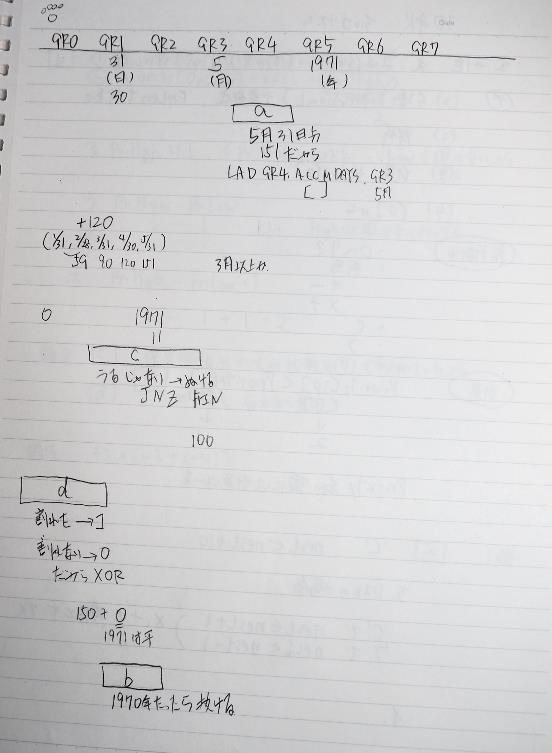 GR0 GR1 GR2 GR3 GR4 GR5 GR6 GR7
31 5 1971
(日) (月) (年)
30
a
5月31日分
151だから
LAD GR4, ACCMDAYS, GR3
[ ] 5月
+120
(1/31, 2/28, 3/31, 4/30, 5/31)
59 90 120 151 3月以上か
0 1971
11
c
うるうじゃない→抜ける
JNZ FIN
100
d
割れた→1
割れない→0
だから XOR
150+0
1971は平
b
1970年だったら抜ける